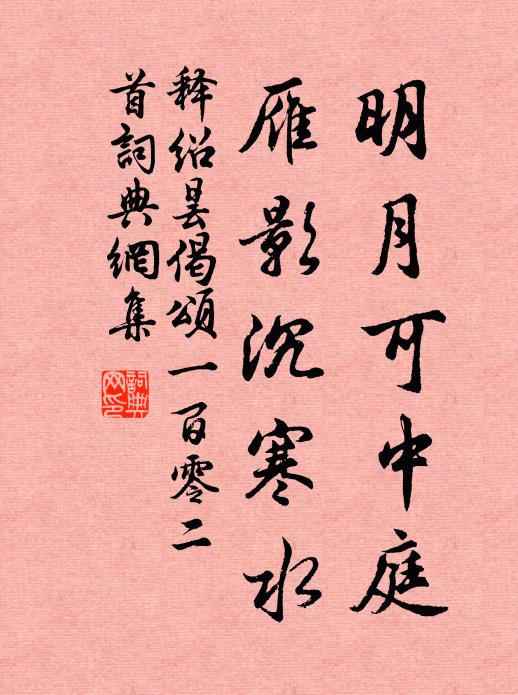 明月可中庭
雁影沉寒水
释绍昙偈颂一百零二
首詞典網集
詞典
网印